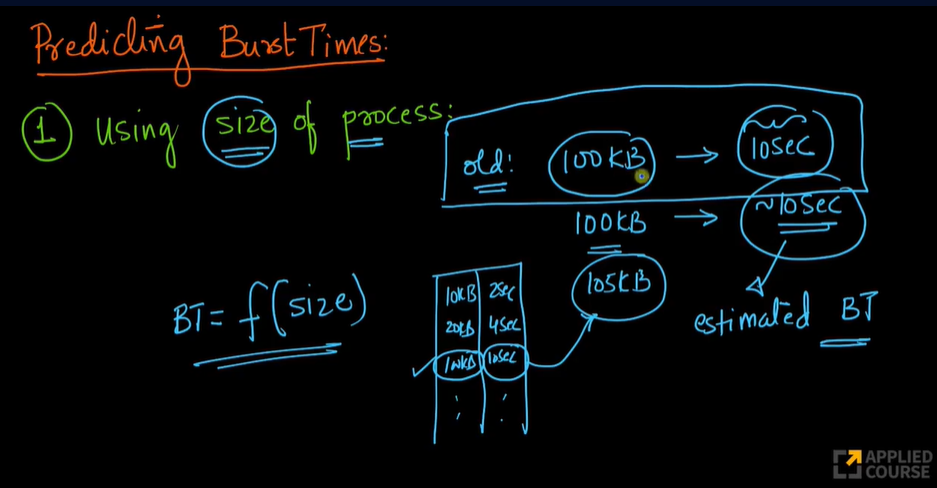 Predicting Burst Times:
① Using size of process:
old: 100KB → 10Sec
100KB → ~10Sec
105KB
estimated BT
BT = f(size)
10KB 2Sec
20KB 4Sec
100KB 10Sec
: :
APPLIED
COURSE